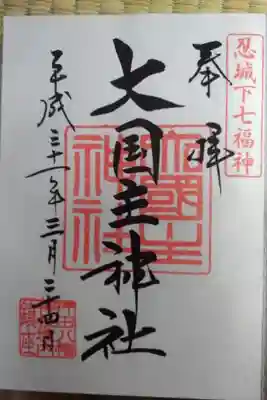 忍城下七福神
奉拝
大国主神社
平成三十一年三月二十四日